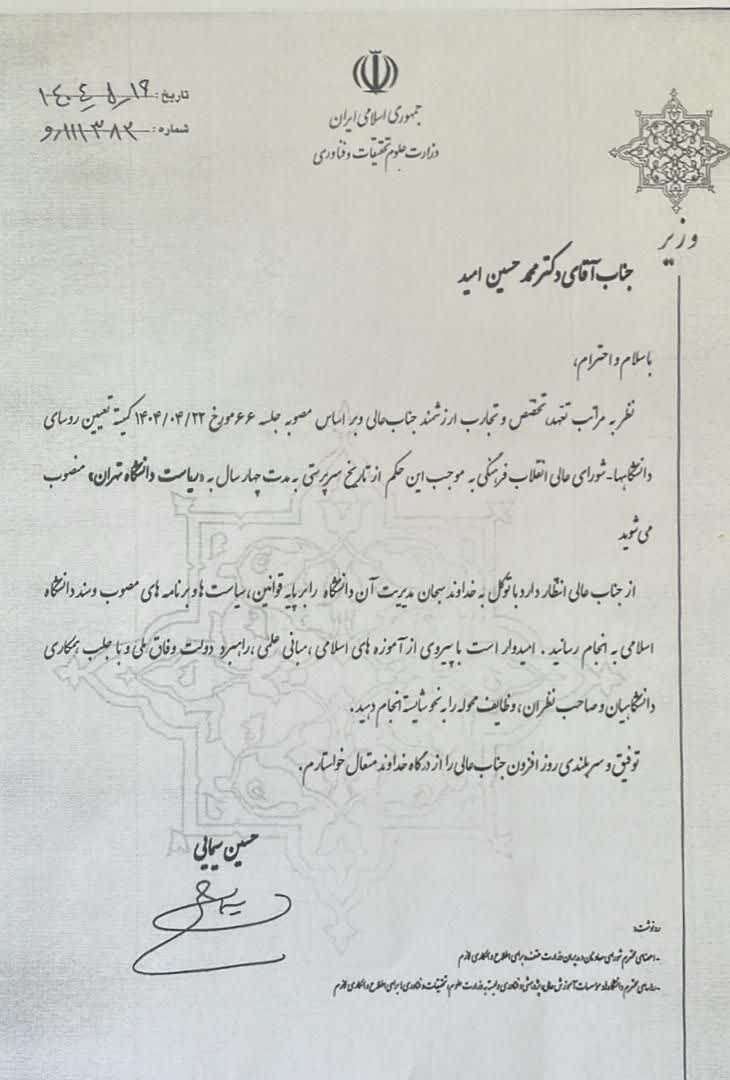 جمهوری اسلامی ایران
وزارت علوم تحقیقات و فناوری
تاریخ: ۱۴۰۴/۵/۱۹
شماره: ۱۱۱۳۸۲/و
وزیر
جناب آقای دکتر محمد حسین امید
باسلام و احترام،
نظر به مراتب تعهد، تخصص و تجارب ارزشمند جناب‌عالی و بر اساس مصوبه جلسه ۶۶ مورخ ۱۴۰۴/۰۴/۲۲ کمیته تعیین روسای
دانشگاهها-شورای عالی انقلاب فرهنگی به موجب این حکم از تاریخ سرپرستی به مدت چهار سال به «ریاست دانشگاه تهران» منصوب
می شوید
از جناب عالی انتظار دارد با توکل به خداوند سبحان مدیریت آن دانشگاه را بر پایه قوانین، سیاست ها و برنامه های مصوب و سند دانشگاه
اسلامی به انجام رسانید. امیدوار است با پیروی از آموزه های اسلامی، مبانی علمی، راهبرد دولت وفاق ملی و با جلب همکاری
دانشگاهیان و صاحب نظران، وظایف محوله را به نحو شایسته انجام دهید.
توفیق و سربلندی روز افزون جناب عالی را از درگاه خداوند متعال خواستارم.
حسین سیمایی
رونوشت:
-اعضای محترم شورای معاونان و مدیران وزارت متبوع برای اطلاع و همکاری لازم
-روسای محترم دانشگاه‌ها، موسسات آموزش عالی، پژوهشی و فناوری وابسته به وزارت علوم، تحقیقات و فناوری برای اطلاع و همکاری لازم